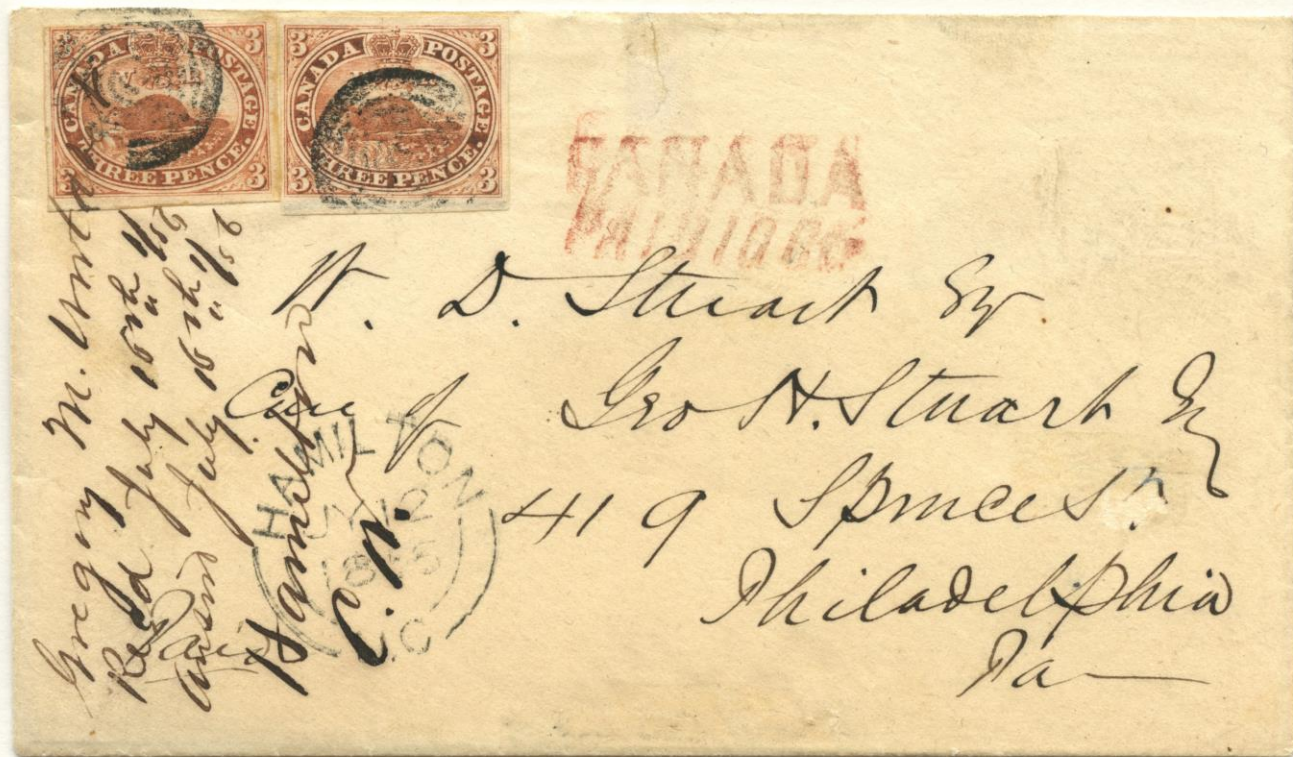 3 CANADA POSTAGE 3
3 THREE PENCE. 3
3 CANADA POSTAGE 3
3 THREE PENCE. 3
CANADA
PAID 10
W. D. Stuart Esq
Care of Geo H. Stuart Esq
419 Spruce St.
Philadelphia
Pa
HAMILTON
JY 12
1855
U.C
Paid
Gregory M.
Recd July 16th
Ansd July 16th
Hamilton
C. W.